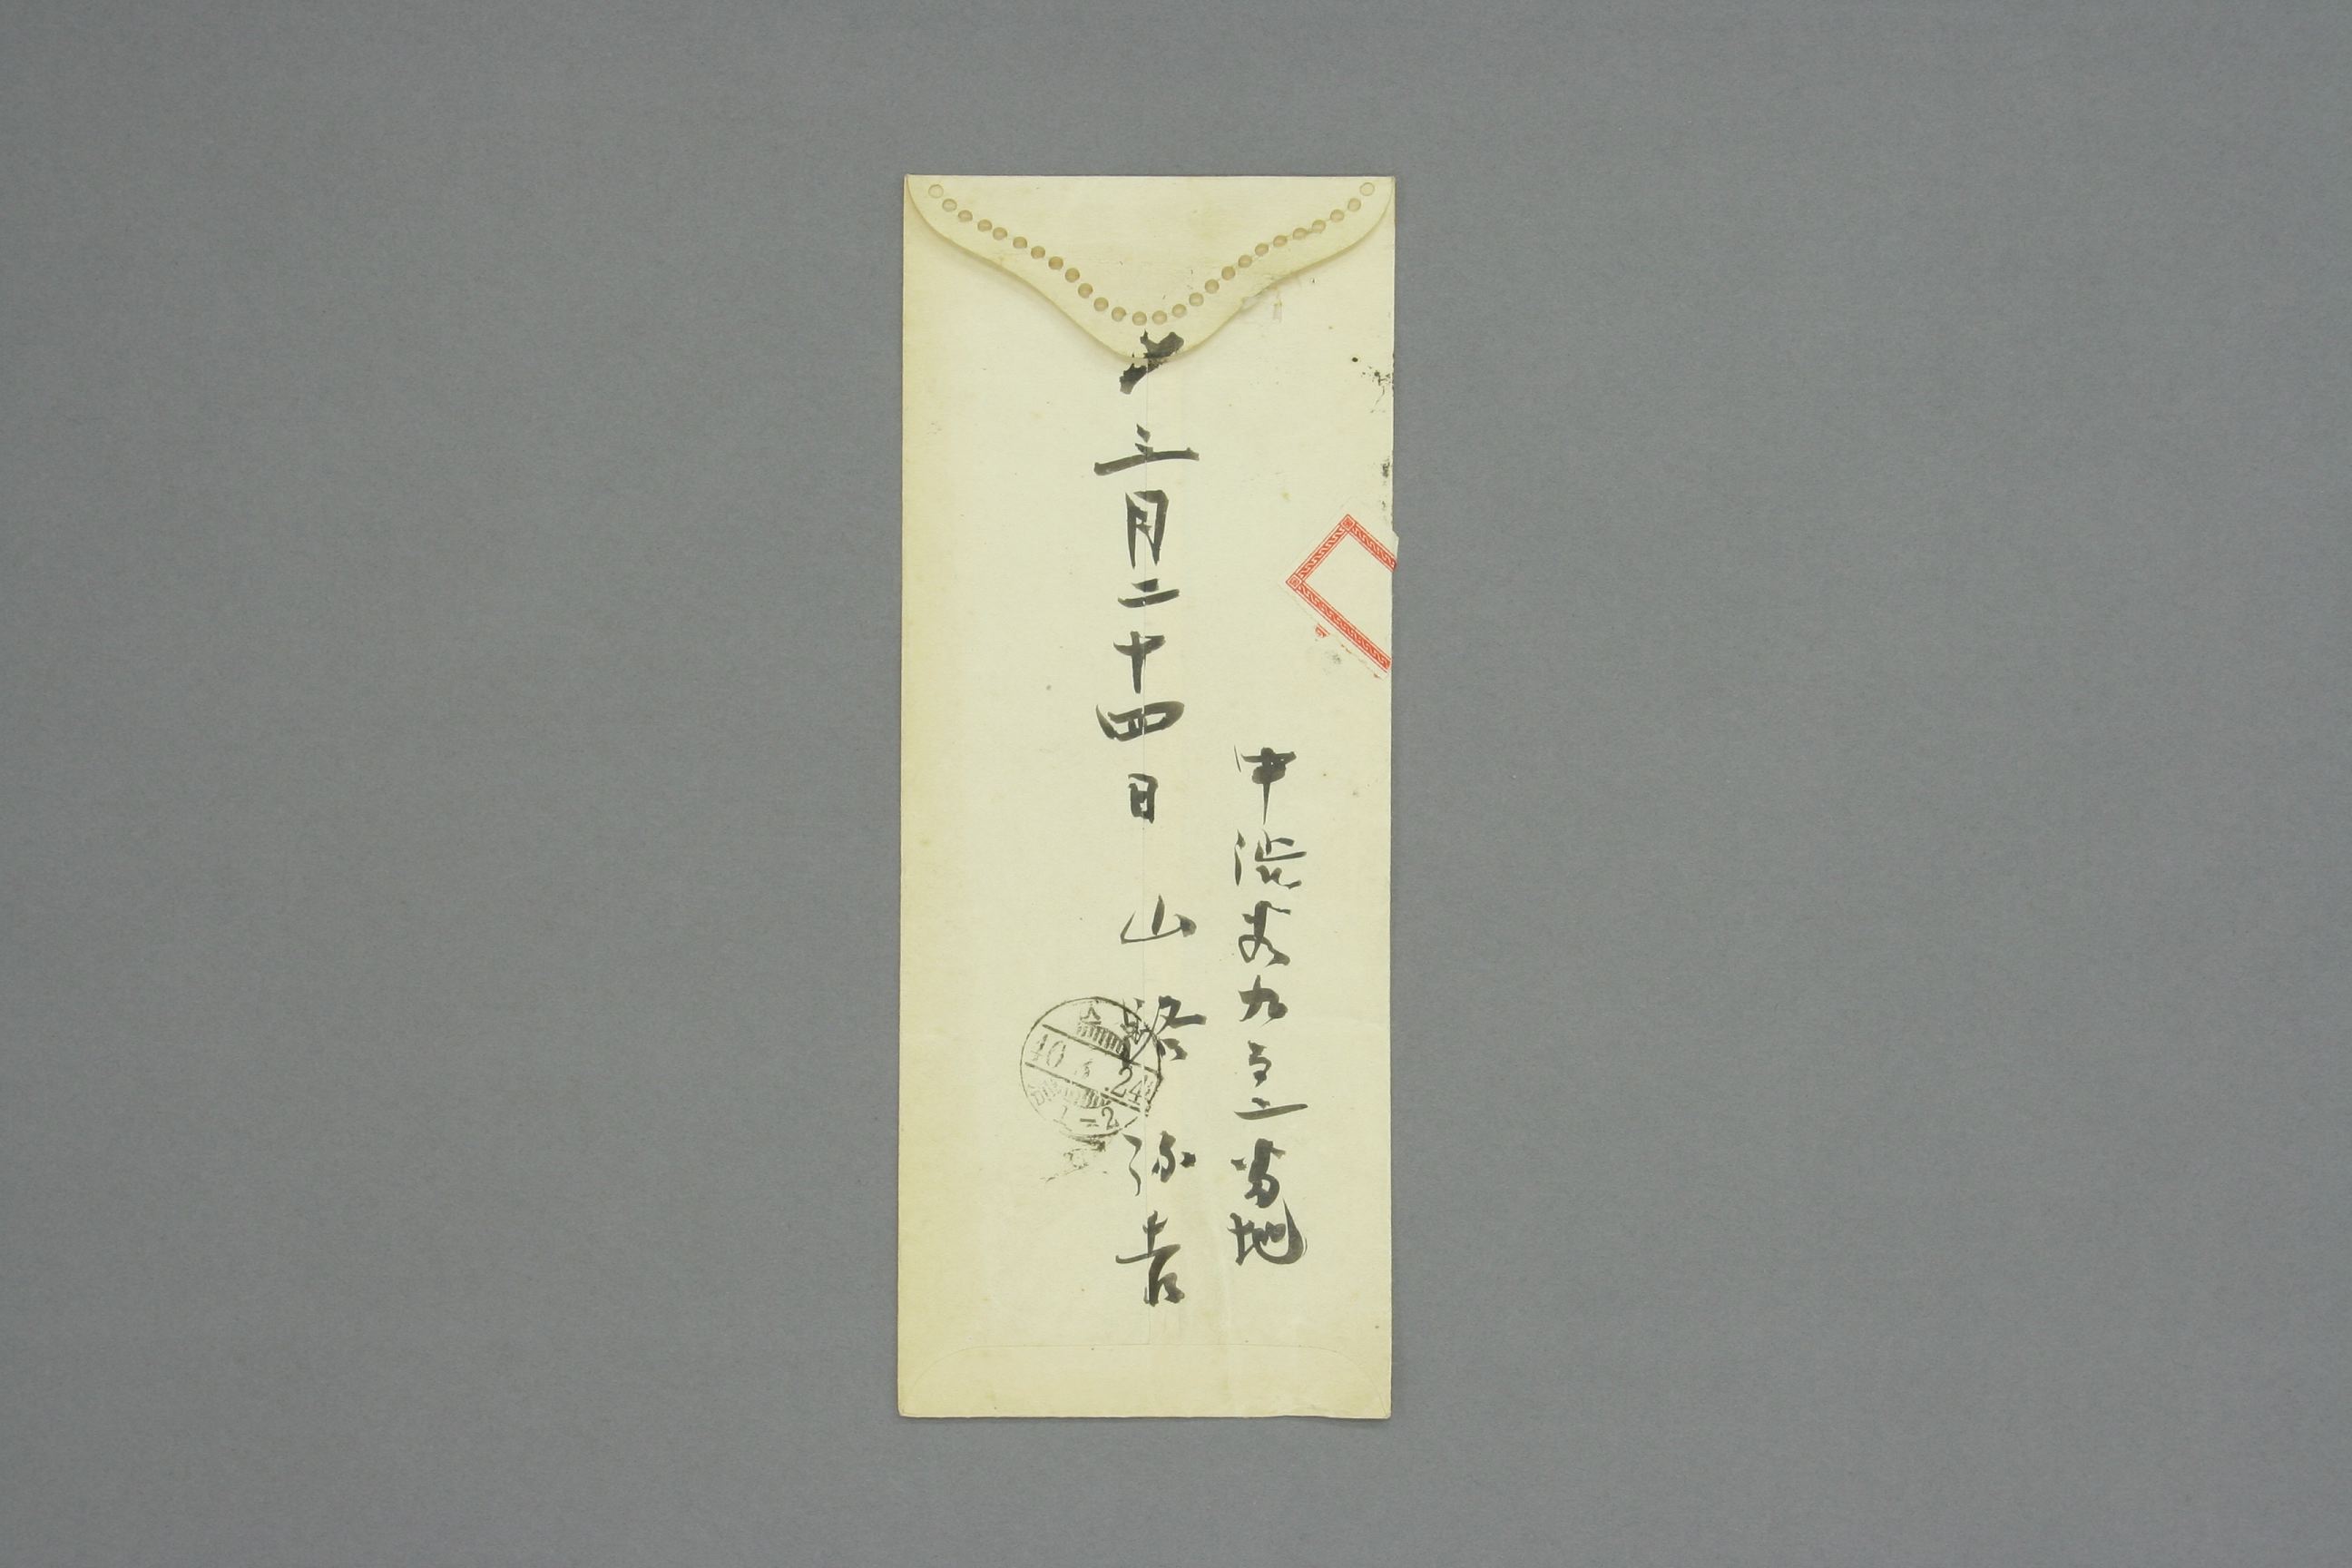 中渋谷九百二番地
三月二十四日 山路弥吉
40 3 .24